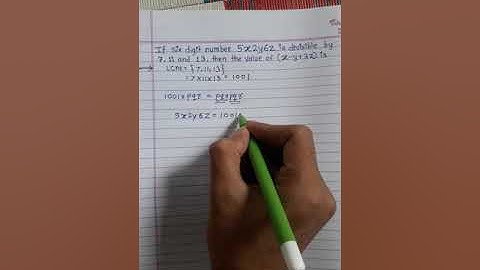 If six digit number 5x2y6z is divisible by
7, 11 and 13, then the value of (x-y+3z) is
LCM = {7,11,13}
= 7x11x13 = 1001
1001 x pqr = pqrpqr
5x2y6z = 1001